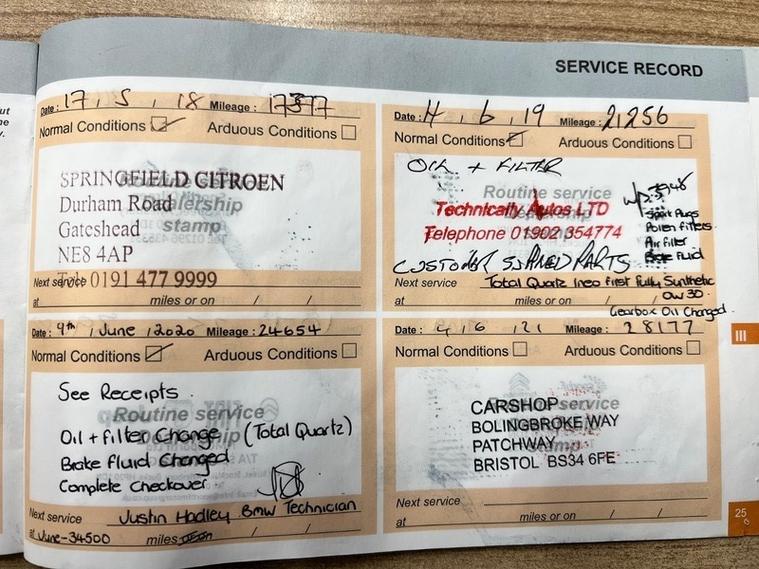 SERVICE RECORD
Date : 17 , 5 , 18 Mileage : 17377
Normal Conditions Arduous Conditions
Routine service
SPRINGFIELD CITROEN
Durham Road
Gateshead
stamp
NE8 4AP
Tel: 0191 477 9999
Next service
at miles or on / /
Date : 4 , 6 , 19 Mileage : 21,256
Normal Conditions Arduous Conditions
OIL + FILTER
Routine service
Technically Autos LTD
Telephone 01902 354774
Spark Plugs
Pollen filters
Air filter
Brake Fluid
CUSTOMER SUPPLIED PARTS
Next service Total Quartz Ineo First Fully Synthetic
0W30
at miles or on / /
Gearbox Oil Changed.
Date : 9th , June , 2020 Mileage : 24654
Normal Conditions Arduous Conditions
See Receipts
Routine service
Oil + filter Change (Total Quartz)
Brake fluid Changed
Complete Checkover
Next service Justin Hadley BMW Technician
at June-34500 miles
Date : 4 , 6 , 21 Mileage : 28177
Normal Conditions Arduous Conditions
service
CARSHOP
BOLINGBROKE WAY
PATCHWAY
stamp
BRISTOL BS34 6FE
Next service
at miles or on / /
III
25